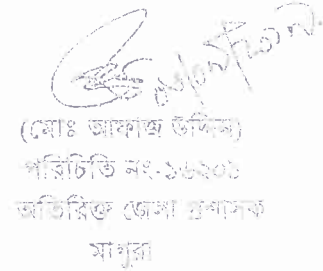 (মোঃ আফাজ উদ্দিন)
পরিচিতি নং-১৬২০১
অতিরিক্ত জেলা প্রশাসক
মাগুরা